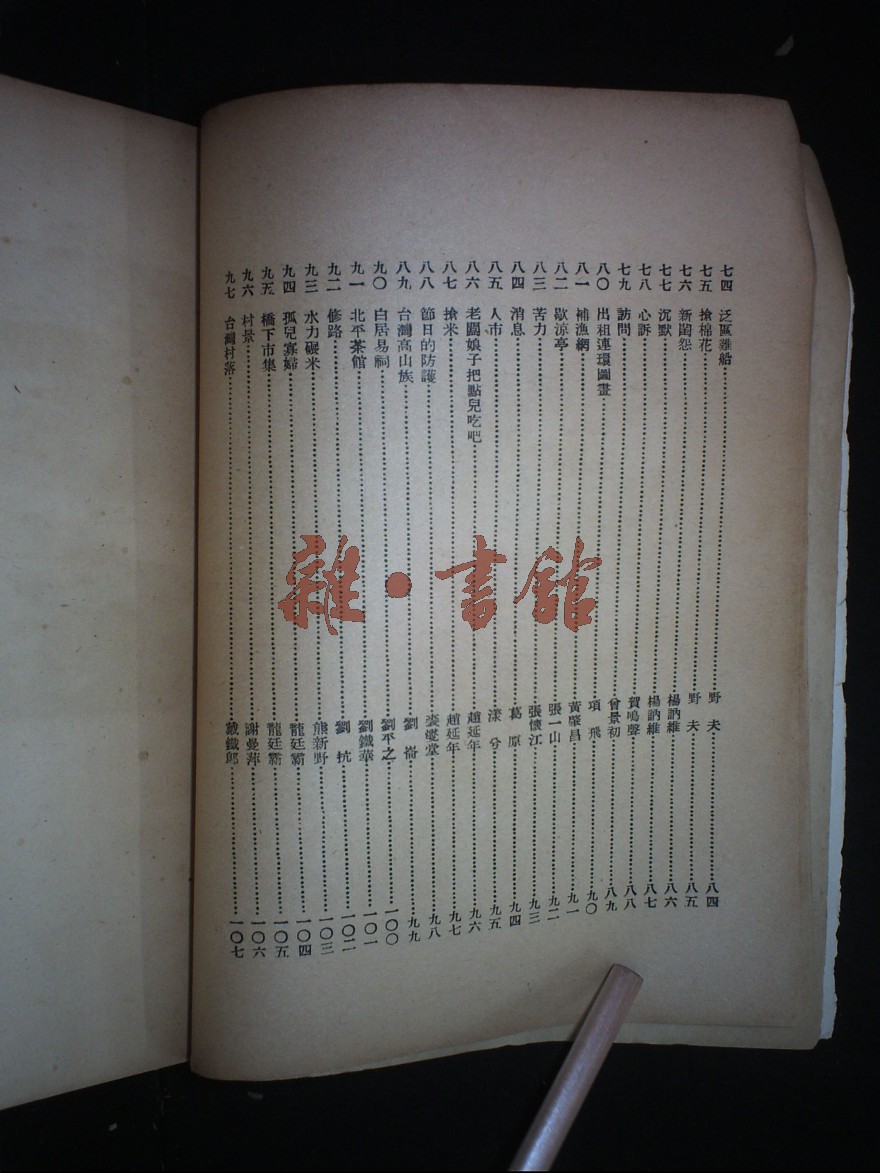 七四 泛區難船……野夫……八四
七五 搶棉花……野夫……八五
七六 新閨怨……楊訥維……八六
七七 沉默……楊訥維……八七
七八 心訴……賀鳴聲……八八
七九 訪問……曾景初……八九
八〇 出租連環圖畫……項飛……九〇
八一 補漁網……黃肇昌……九一
八二 歇涼亭……張一山……九二
八三 苦力……張懷江……九三
八四 消息……葛原……九四
八五 人市……漾兮……九五
八六 老闆娘子把點兒吃吧……趙延年……九六
八七 搶米……趙延年……九七
八八 節日的防護……堂……九八
八九 台灣高山族……劉崙……九九
九〇 白居易祠……劉平之……一〇〇
九一 北平茶館……劉鐵華……一〇一
九二 修路……劉抗……一〇二
九三 水力碾米……熊新野……一〇三
九四 孤兒寡婦……龍廷霸……一〇四
九五 橋下市集……龍廷霸……一〇五
九六 村景……謝曼萍……一〇六
九七 台灣村落……戴鐵郎……一〇七
雜·書館